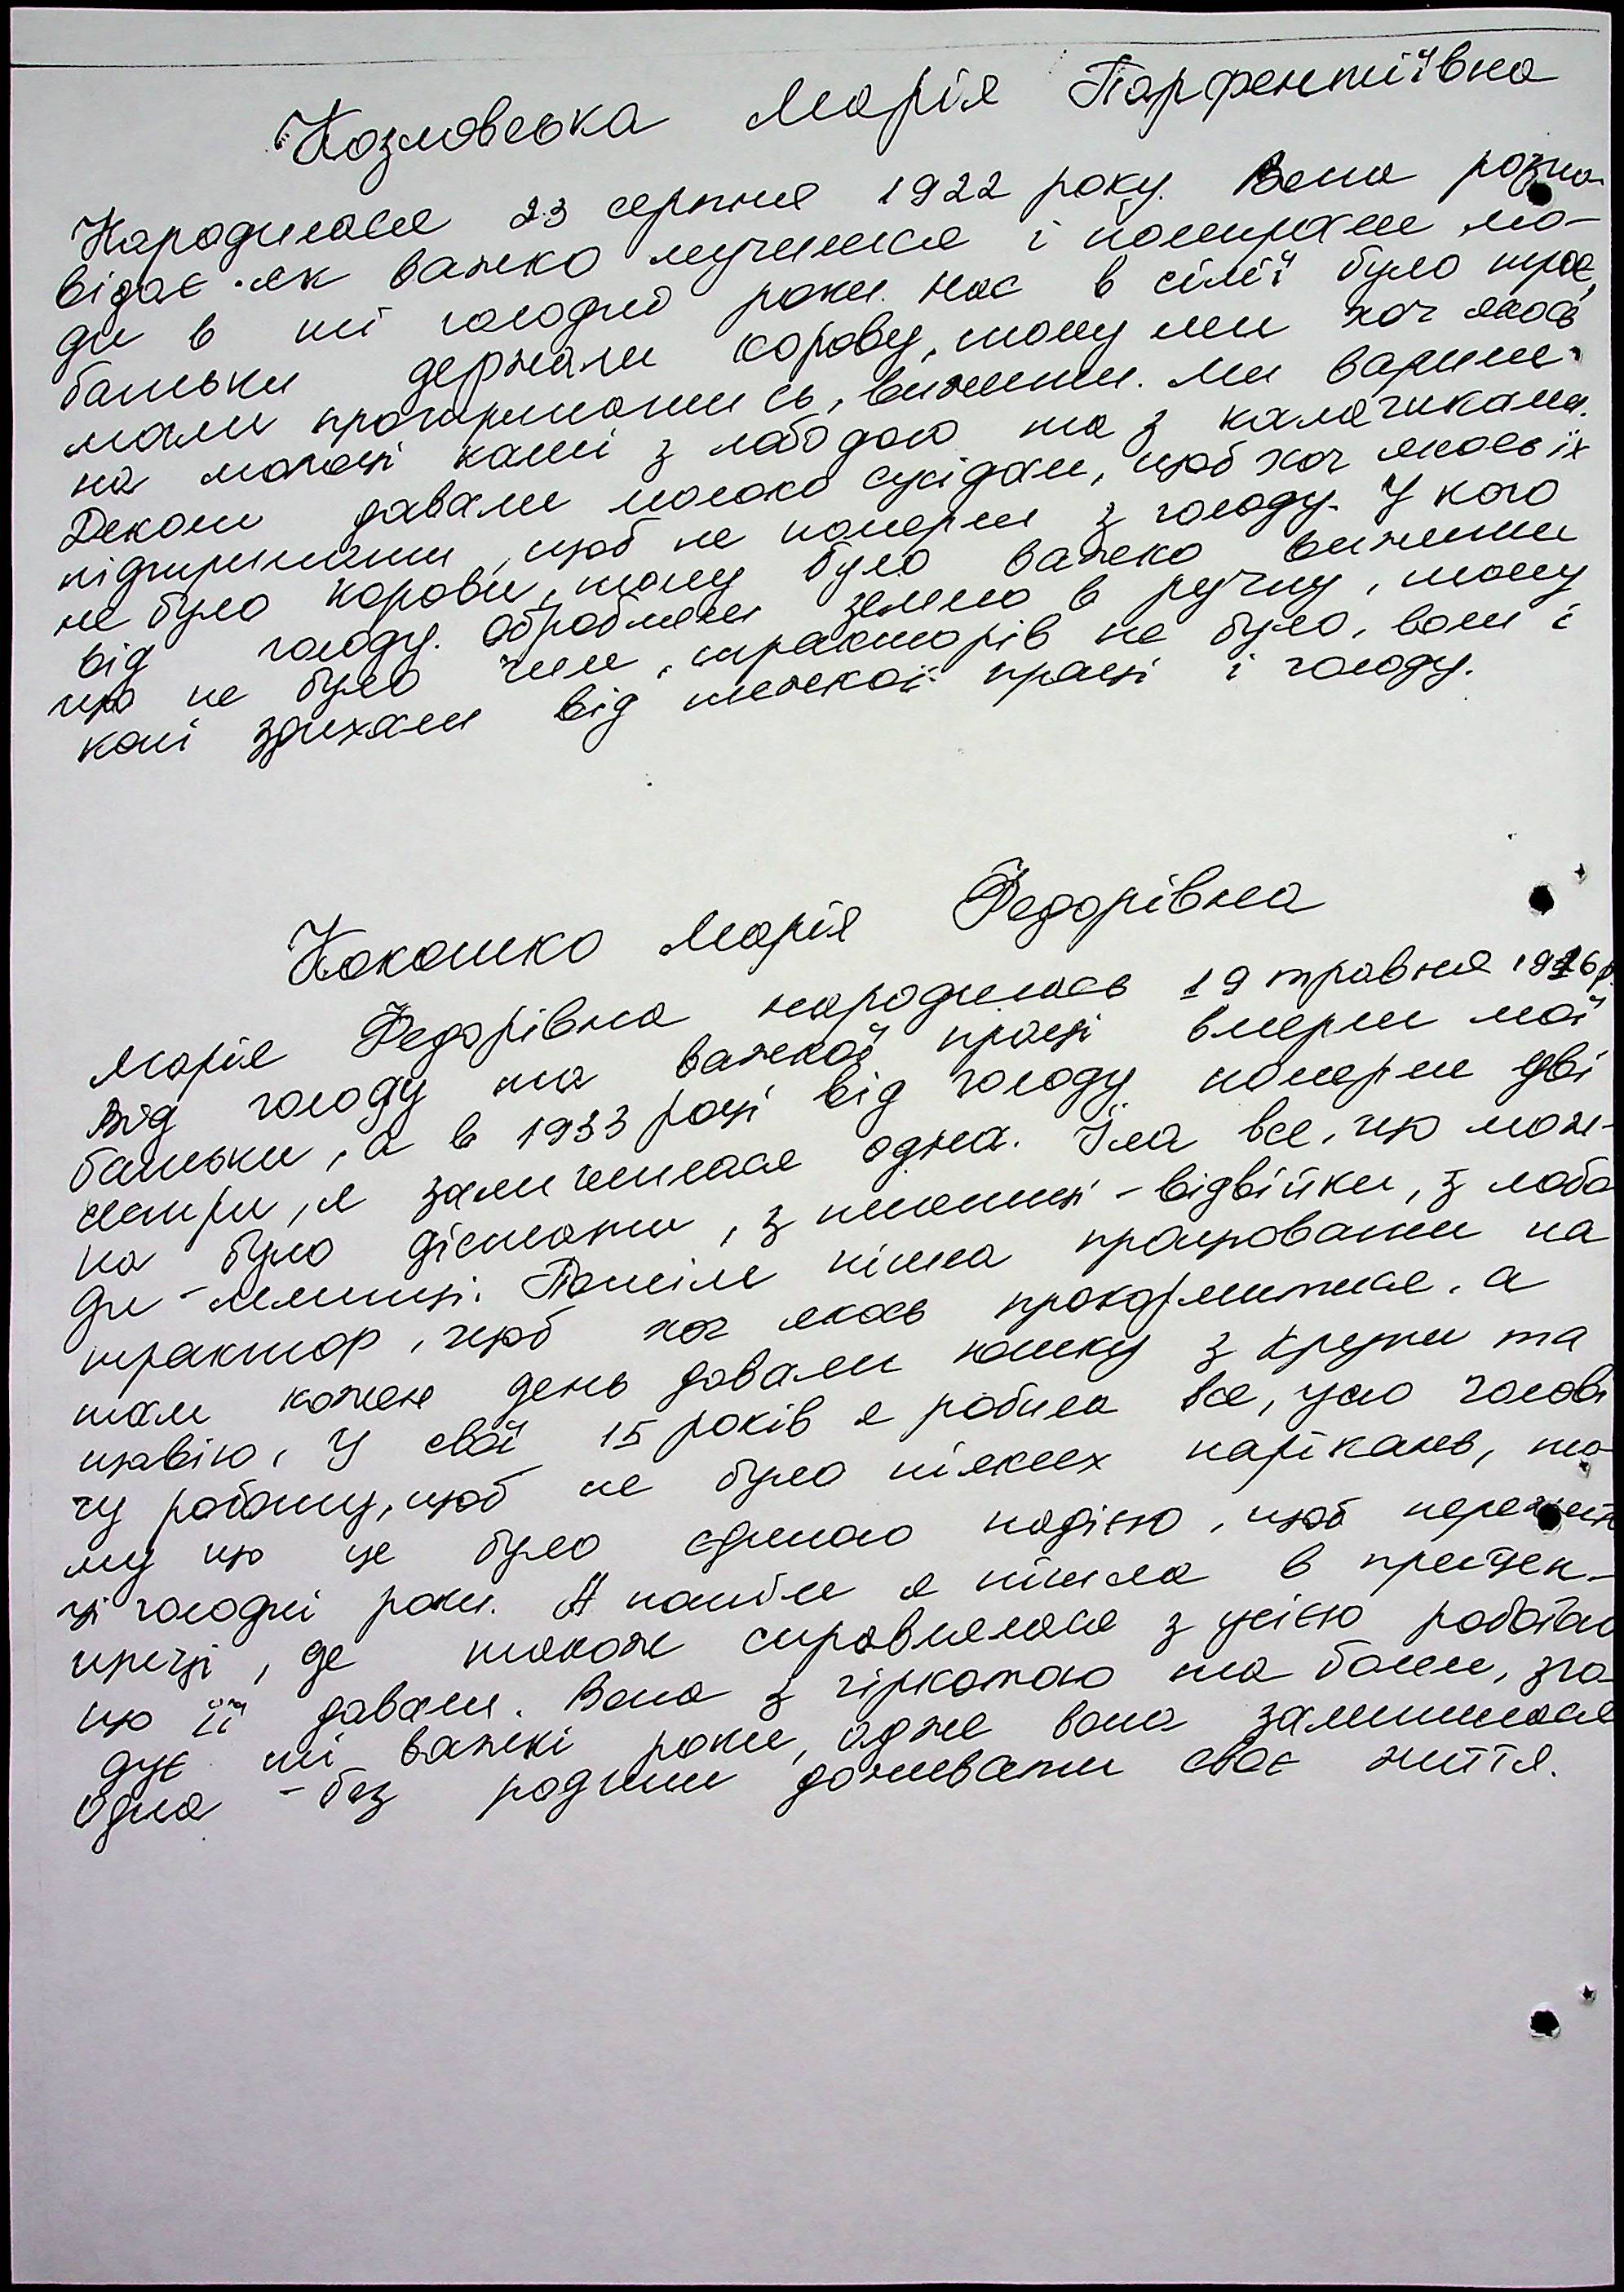 Козловська Марія Парфентіївна
Народилася 23 серпня 1922 року. Вона розпо-
відає як важко мучилися і помирали лю-
ди в ті голодні роки. Нас в сім'ї було троє,
батьки держали корову, тому ми хоч якось
мали прогодуватись, вижити. Ми варили
на молоці каші з лободою та з калачиками.
Деколи давали молоко сусідам, щоб хоч якось їх
підтримати, щоб не померли з голоду. У кого
не було корови, тому було важко вижити
від голоду. Обробляли землю в ручну, тому
що не було чим, тракторів не було, воли і
коні здихали від тяжкої праці і голоду.
Кокошко Марія Федорівна
Марія Федорівна народилась 19 травня 1916р.
Від голоду та важкої праці вмерли мої
батьки, а в 1933 році від голоду померли дві
сестри, я залишилася одна. Їла все, що мож-
на було дістати, з пшениці - відвійки, з лобо
ди - млинці. Потім пішла працювати на
трактор, щоб хоч якось прокормитися, а
там кожен день давали юшку з крупи та
щавлю. У свої 15 років я робила все, усю чолові
чу роботу, щоб не було ніяких нарікань, то-
му що це було єдиною надією, щоб пережити
ці голодні роки. А потім я пішла в прицеп-
щиці, де також справлялася з усією роботою
що їй давали. Вона з гіркотою та болем, зга-
дує ті важкі роки, адже вона залишилася
одна - без родини доживати своє життя.